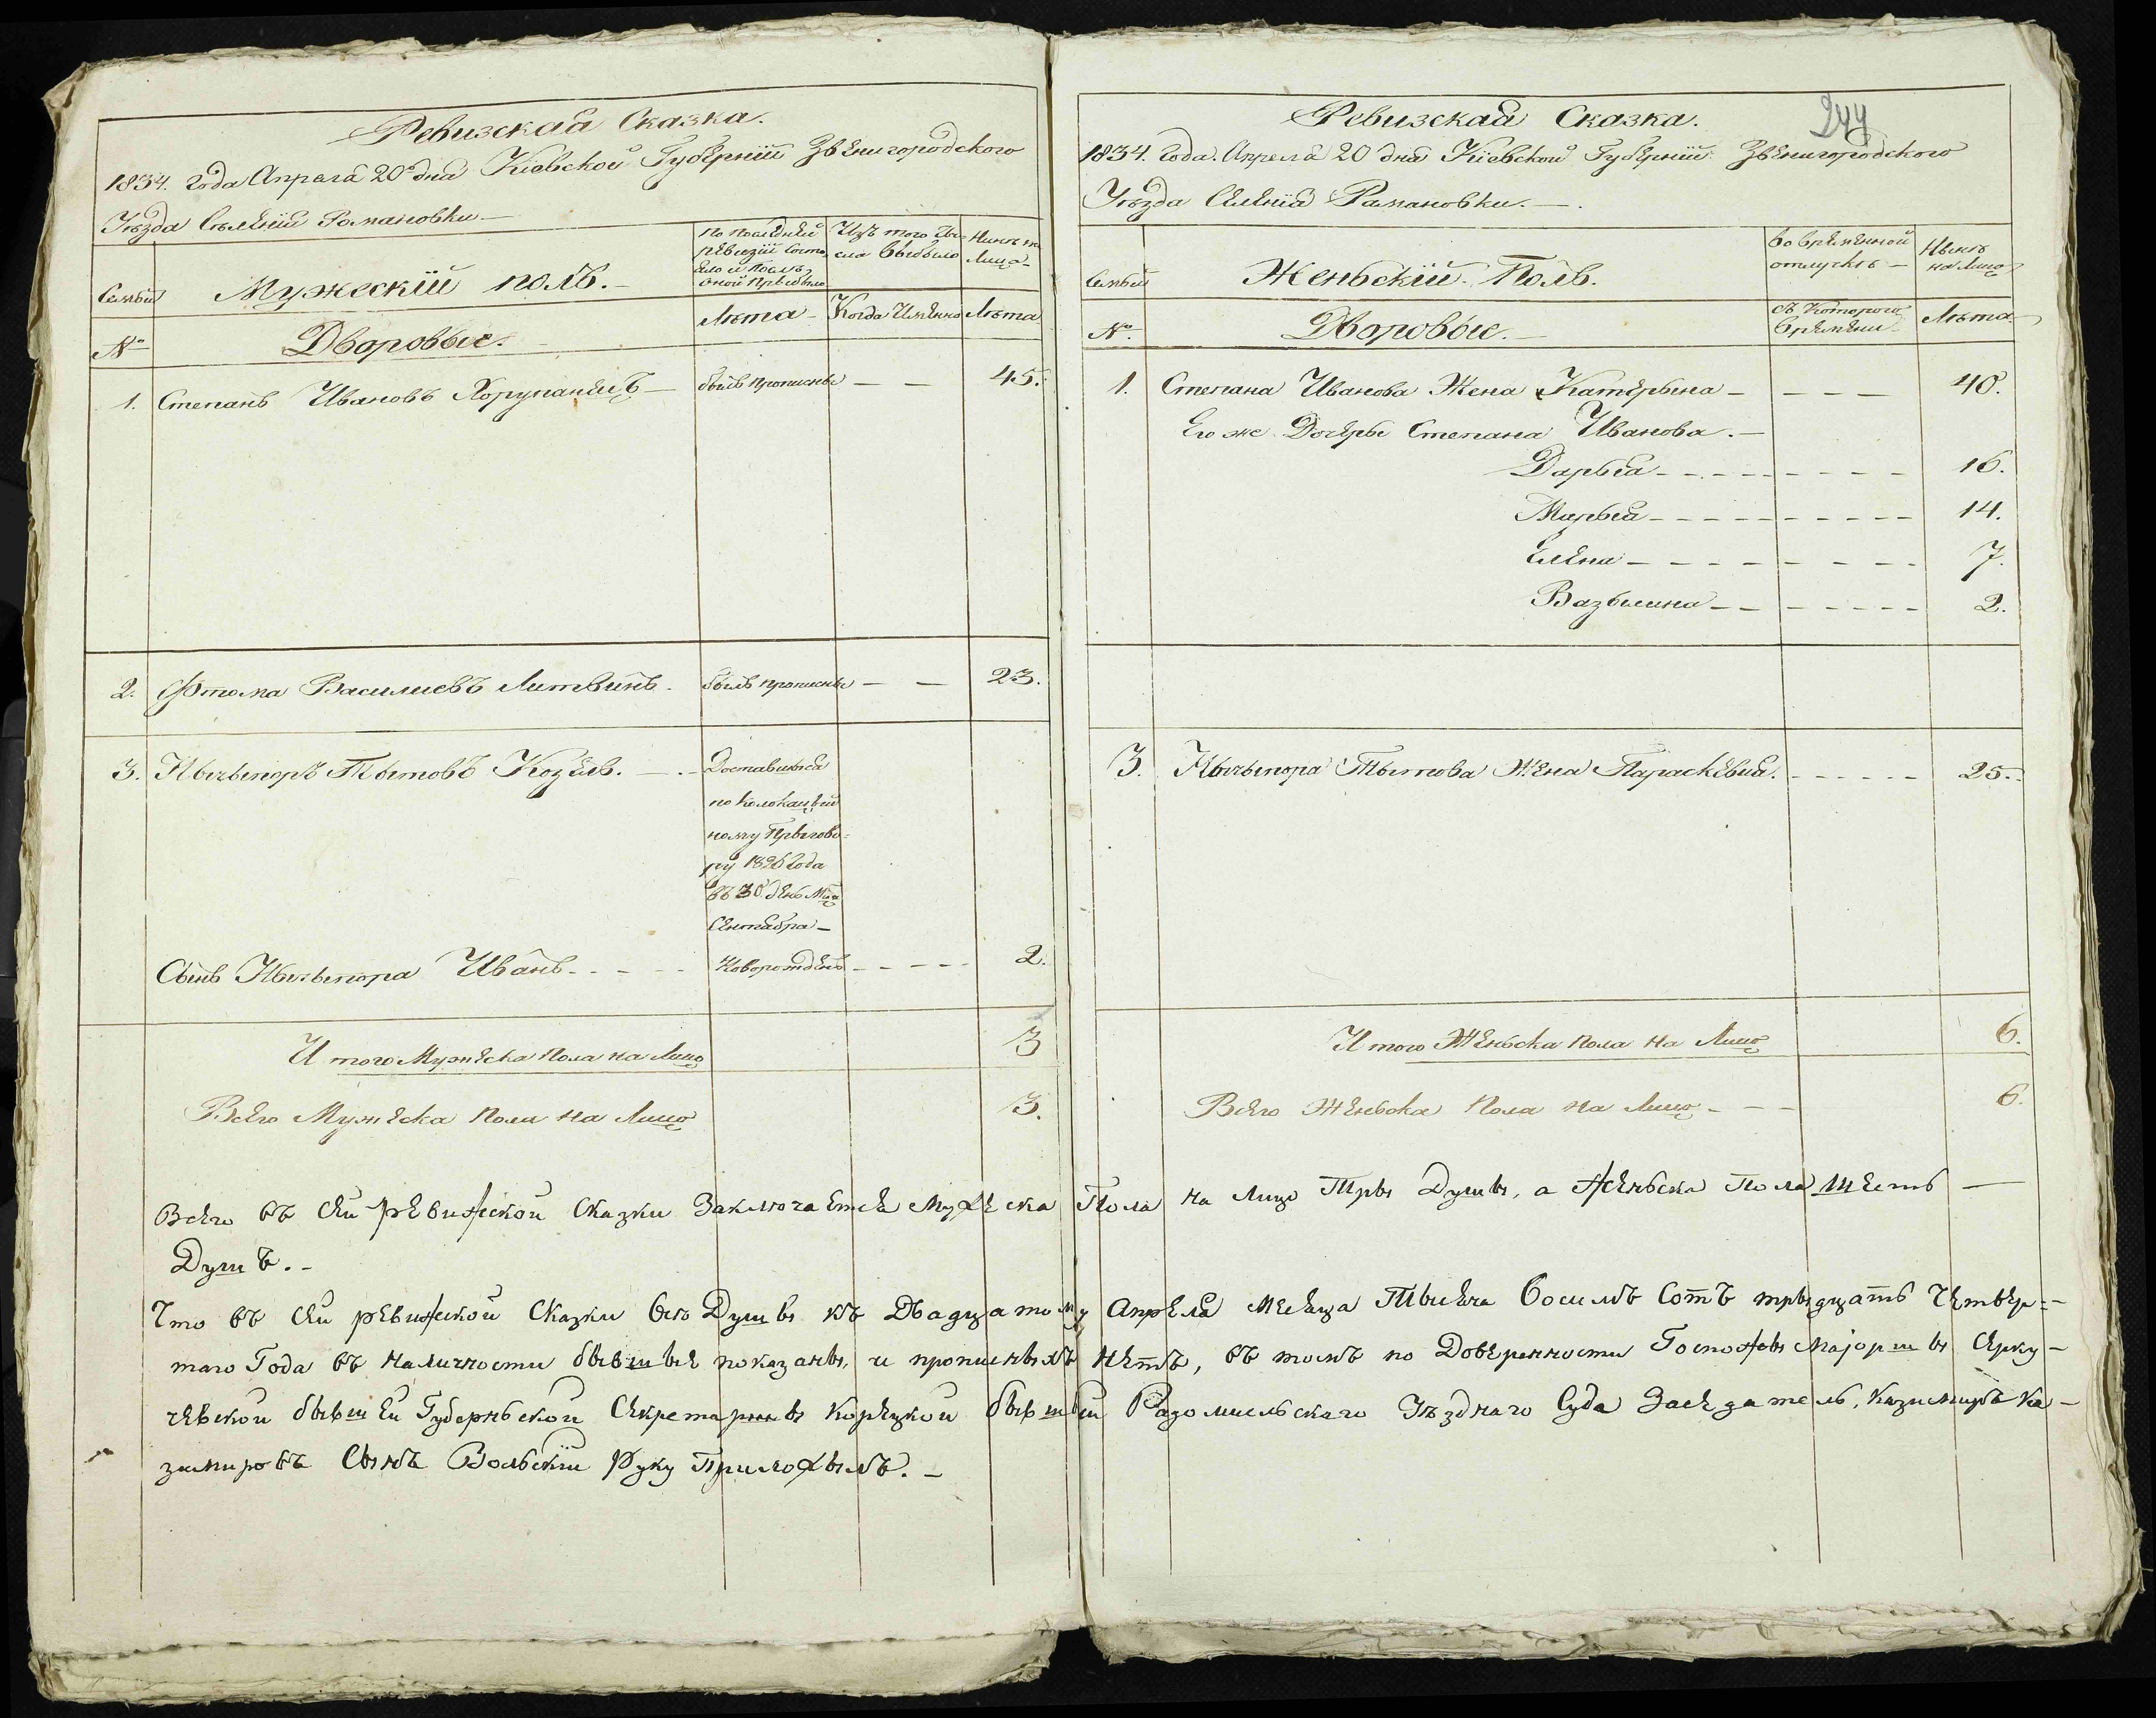 Ревизская Сказка.
1834. года Апреля 20 дня Кіевской Губерніи Звенигородского
Уезда Селенія Романовки —
Семьи Мужескій полъ. —
По последней ревизіи состояло и после оной прибыло
Изъ того числа выбыло
Ныне на Лицо
№ Дворовые. Лета — Когда Именно Лета
1. Степанъ Ивановъ — былъ прописны — — 45.
2. Фтома Василиевъ Литвинъ. былъ прописны — — 23.
3. Нычыпоръ Тытовъ Козелъ. — Доставшыся
ному Прыгово-
ру 1826 года
въ 30 день Мца
Сентабра —
Сынъ Нычыпора Иванъ - - - - Новорожденъ - - - - 2.
И того Мужеска пола на Лицо 3
Всего Мужеска пола на Лицо 3.
244
Ревизская Сказка.
1834. года. Апреля 20 дня Кіевской Губерніи Звенигородского
Уезда Селенія Рамановки. —
Семьи Женьскій Полъ.
Во временной отлучке —
Ныне на Лицо
№. Дворовые. — Съ Которого времени Лета —
1. Степана Иванова Жена Катерына — — — — 40.
Его же Дочеры Степана Иванова. —
Дарыя - - - - - - - - 16.
Марыя - - - - - - - - 14.
Елена - - - - - - - - 7.
Вазылина - - - - - - - 2.
3. Нычыпора Тытова Жена Параскевия. - - - - - - 25.
И того Женьска пола на Лицо 6.
Всего Женьска Пола на Лицо - - - 6.
Всего въ сей ревижской Сказки Заключается Мужеска Пола на Лицо Тры Душы, а Женьска Пола Шесть —
Душъ. —
Что въ сей ревижской Сказки всѣ Душы къ Двадцатому Апреля месеца Тысеча восимъ сотъ трыдцать Четвер=
таго Года въ наличности бывшые показаны, и прописныхъ нетъ, въ томъ по Доверенности Госпожы Маjоршы
бывшей Губерньской Секретаршы Корецкой бывшый Радомисльскаго Уезднаго Суда Заседатель, Казимиръ Ка-
зимировъ Сынъ Вольскій Руку Приложылъ. —